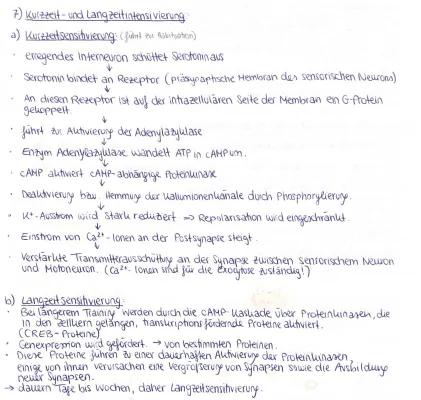 7) Kurzzeit- und Langzeitintensivierung
a) Kurzzeitsensitivierung: (führt zur Habituation)
· erregendes Interneuron schüttet Serotonin aus
↓
· Serotonin bindet an Rezeptor (präsynaptische Membran des sensorischen Neurons)
↓
· An diesen Rezeptor ist auf der intrazellulären Seite der Membran ein G-Protein
gekoppelt.
↓
· führt zur Aktivierung der Adenylatzyklase
↓
· Enzym Adenylatzyklase wandelt ATP in cAMP um.
↓
· cAMP aktiviert cAMP-abhängige Proteinkinase
↓
· Deaktivierung bzw. Hemmung der Kaliumionenkanäle durch Phosphorylierung.
↓
· K⁺-Ausstrom wird stark reduziert → Repolarisation wird eingeschränkt.
↓
· Einstrom von Ca²⁺-Ionen an der Postsynapse steigt.
↓
· Verstärkte Transmitterausschüttung an der Synapse zwischen sensorischem Neuron
und Motoneuron. (Ca²⁺-Ionen sind für die Exozytose zuständig!)
b) Langzeitsensitivierung:
· Bei längerem Training werden durch die cAMP-Kaskade über Proteinkinasen, die
in den Zellkern gelangen, transkriptionsfördernde Proteine aktiviert.
(CREB-Proteine)
· Genexpression wird gefördert. → von bestimmten Proteinen.
· Diese Proteine führen zu einer dauerhaften Aktivierung der Proteinkinasen,
einige von ihnen verursachen eine Vergrößerung von Synapsen sowie die Ausbildung
neuer Synapsen.
→ dauern Tage bis Wochen, daher Langzeitsensitivierung.